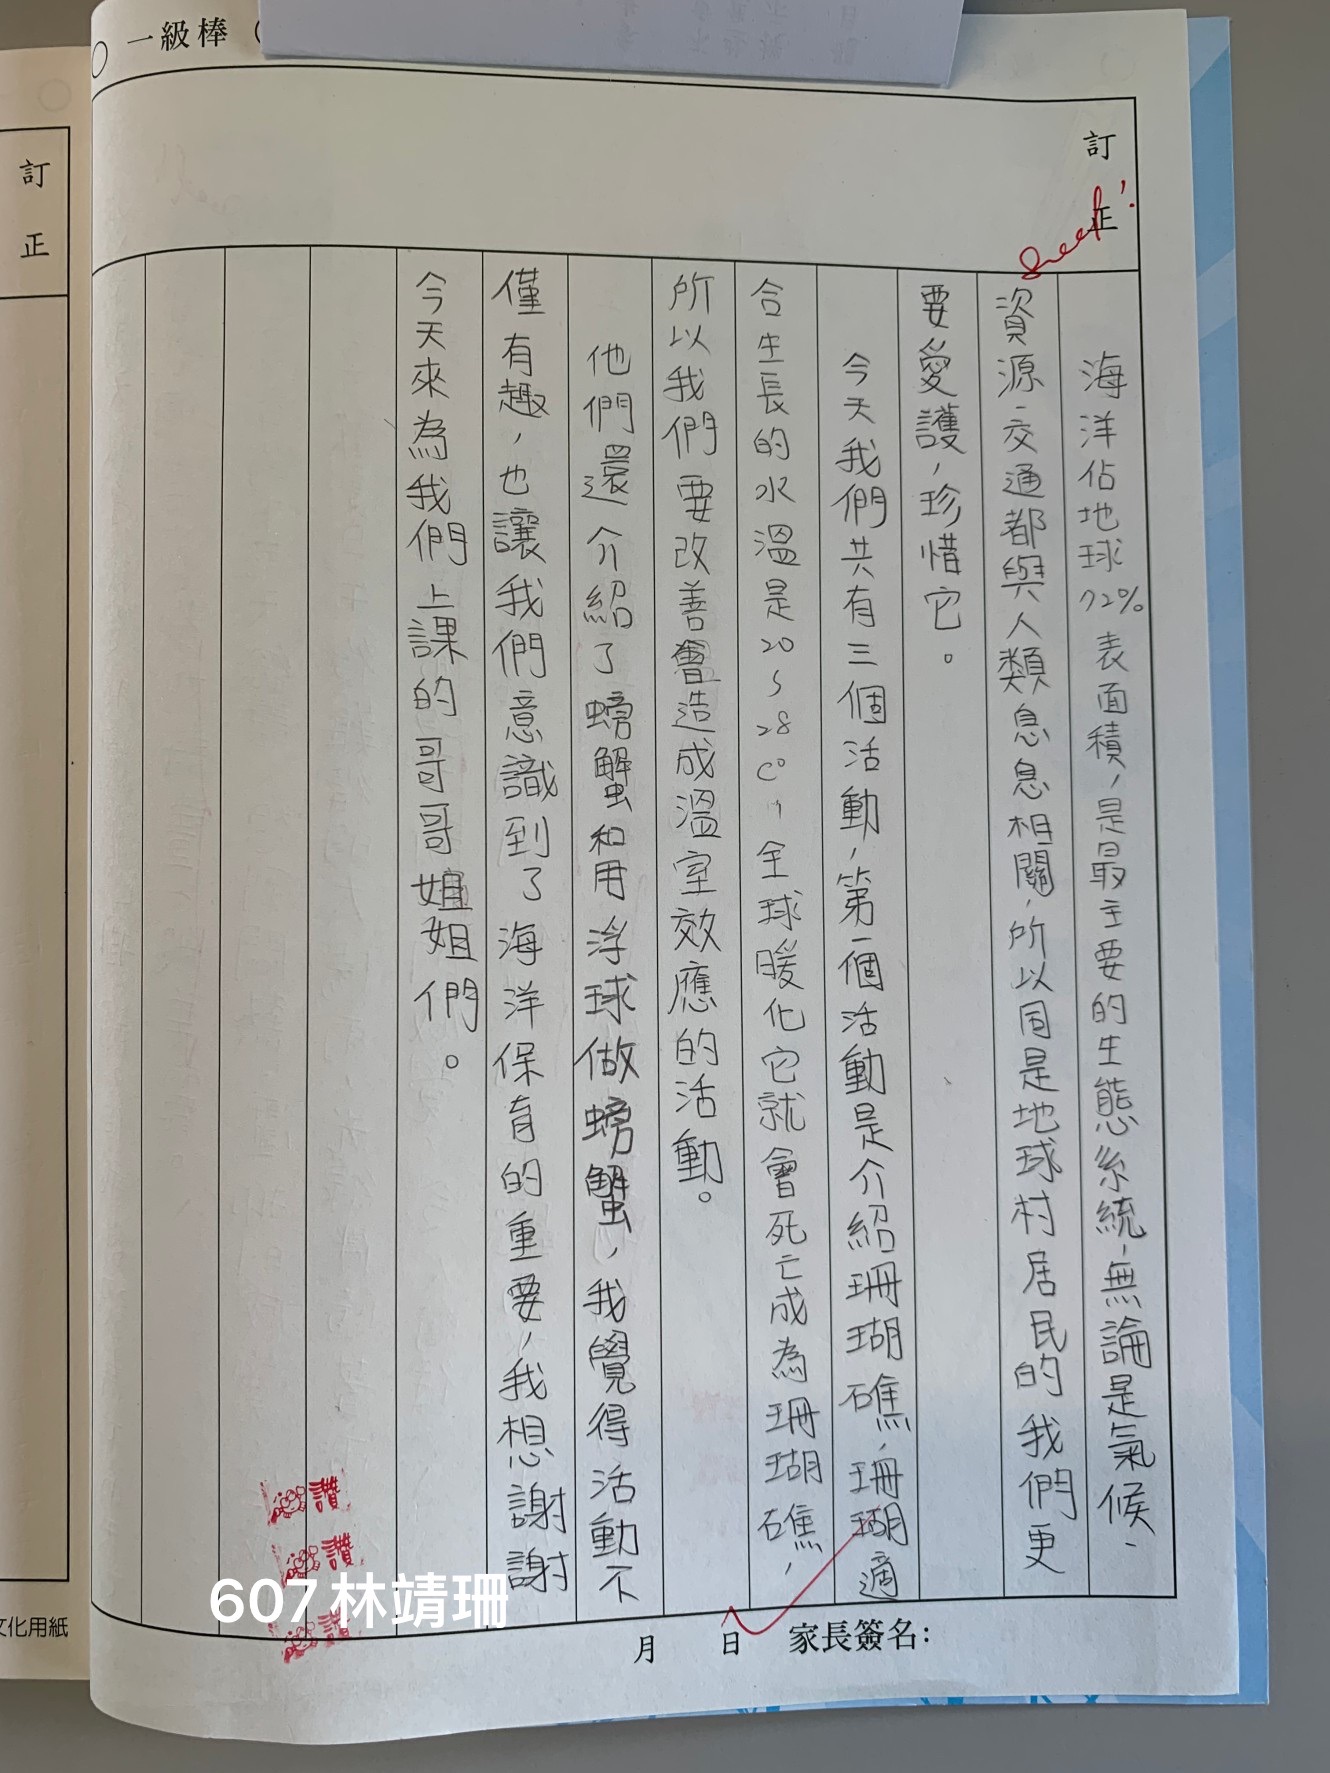 一級棒（
訂正
Good!
海洋佔地球72%表面積，是最主要的生態系統，無論是氣候、
資源、交通都與人類息息相關，所以同是地球村居民的我們更
要愛護，珍惜它。
今天我們共有三個活動，第一個活動是介紹珊瑚礁，珊瑚適
合生長的水溫是20~28C°，全球暖化它就會死亡成為珊瑚礁，
所以我們要改善會造成溫室效應的活動。
他們還介紹了螃蟹和用浮球做螃蟹，我覺得活動不
僅有趣，也讓我們意識到了海洋保育的重要，我想謝謝
今天來為我們上課的哥哥姐姐們。
讚
讚
讚
607林靖珊
月 日 家長簽名：
訂正
文化用紙